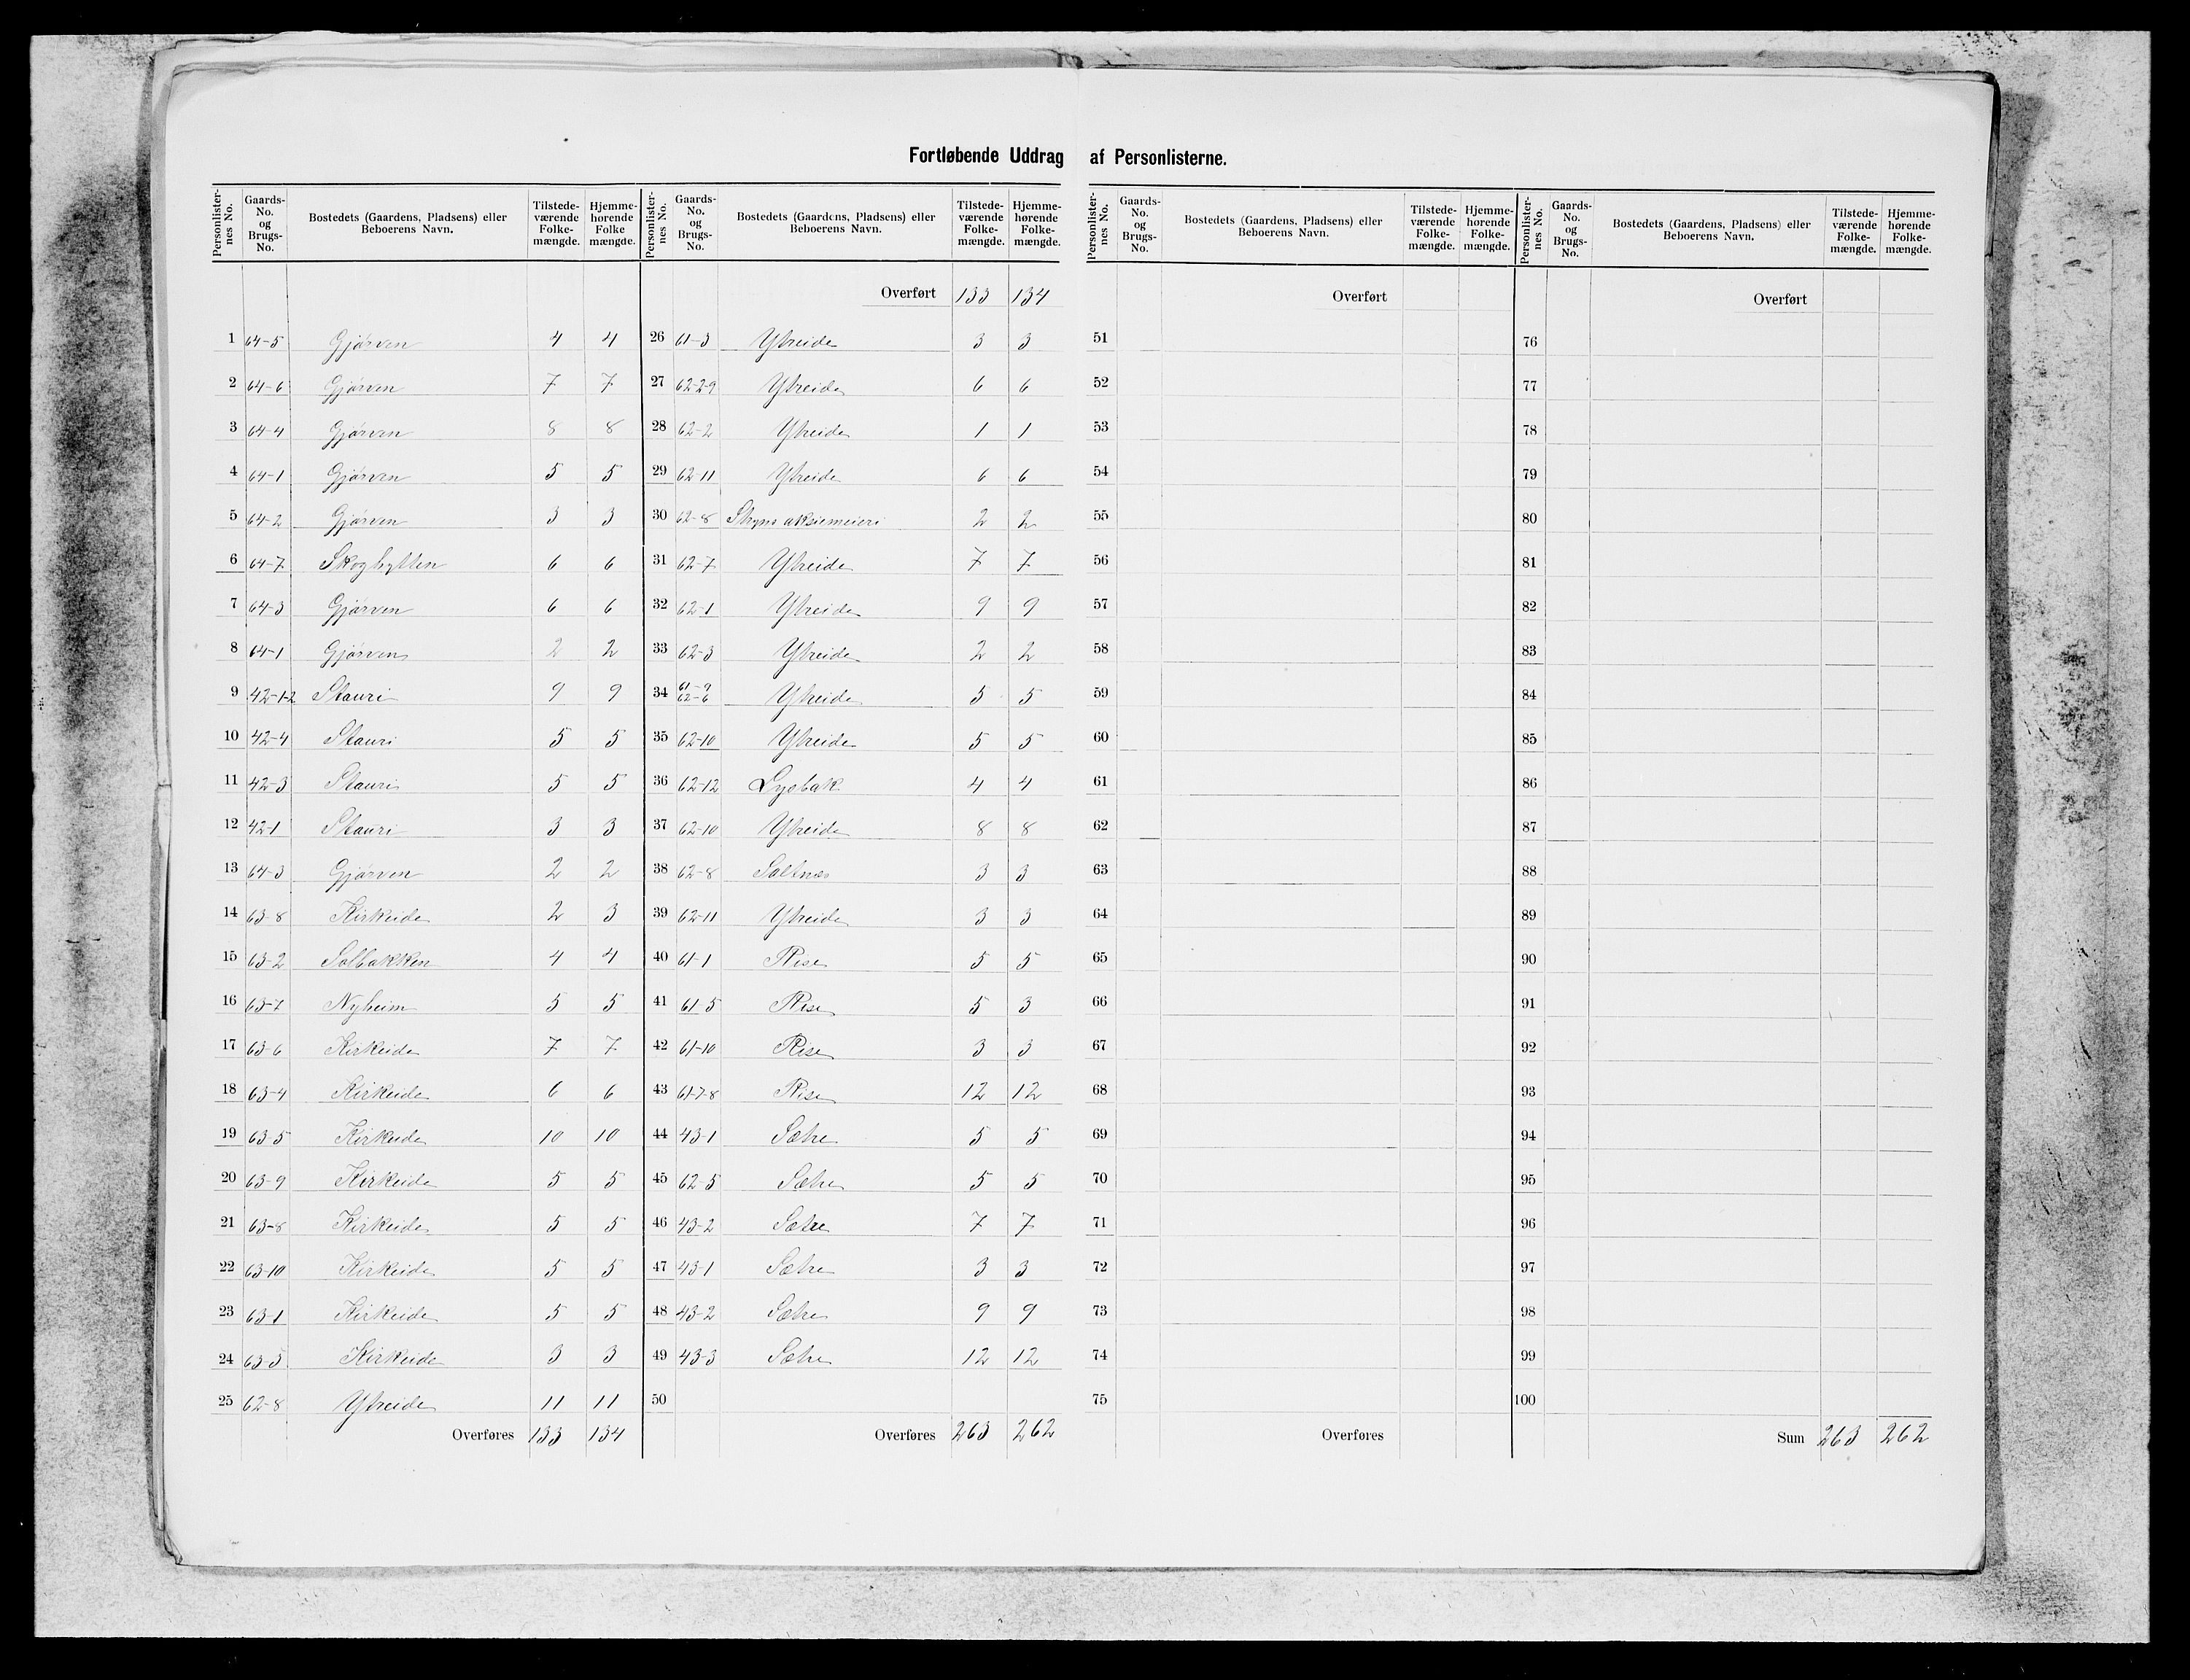 Fortløbende Uddrag af Personlisterne.
Personlisternes No. Gaards-No. og Brugs-No. Bostedets (Gaardens, Pladsens) eller Beboerens Navn. Tilstedeværende Folkemængde. Hjemmehørende Folke mængde.
1 64-5 Gjörven 4 4
2 64-6 Gjörven 7 7
3 64-4 Gjörven 8 8
4 64-1 Gjörven 5 5
5 64-2 Gjörven 3 3
6 64-7 Skoghytten 6 6
7 64-3 Gjörven 6 6
8 64-1 Gjörven 2 2
9 42-1-2 Stauri 9 9
10 42-4 Stauri 5 5
11 42-3 Stauri 5 5
12 42-1 Stauri 3 3
13 64-3 Gjörven 2 2
14 63-8 Kirkeide 2 3
15 63-2 Solbakken 4 4
16 63-7 Nyheim 5 5
17 63-6 Kirkeide 7 7
18 63-4 Kirkeide 6 6
19 63-5 Kirkeide 10 10
20 63-9 Kirkeide 5 5
21 63-8 Kirkeide 5 5
22 63-10 Kirkeide 5 5
23 63-1 Kirkeide 5 5
24 63-5 Kirkeide 3 3
25 62-8 Ytreide 11 11
Overføres 133 134
Personlisternes No. Gaards-No. og Brugs-No. Bostedets (Gaardens, Pladsens) eller Beboerens Navn. Tilstedeværende Folkemængde. Hjemmehørende Folkemængde.
Overført 133 134
26 61-3 Ytreide 3 3
27 62-2-9 Ytreide 6 6
28 62-2 Ytreide 1 1
29 62-11 Ytreide 6 6
30 62-8 Stryns aksiemeieri 2 2
31 62-7 Ytreide 7 7
32 62-1 Ytreide 9 9
33 62-3 Ytreide 2 2
34 61-9 62-6 Ytreide 5 5
35 62-10 Ytreide 5 5
36 62-12 Lysbak 4 4
37 62-10 Ytreide 8 8
38 62-8 Saltnes 3 3
39 62-11 Ytreide 3 3
40 61-1 Rise 5 5
41 61-5 Rise 5 3
42 61-10 Rise 3 3
43 61-7-8 Rise 12 12
44 43-1 Sætre 5 5
45 62-5 Sætre 5 5
46 43-2 Sætre 7 7
47 43-1 Sætre 3 3
48 43-2 Sætre 9 9
49 43-3 Sætre 12 12
50
Overføres 263 262
Personlisternes No. Gaards-No. og Brugs-No. Bostedets (Gaardens, Pladsens) eller Beboerens Navn. Tilstedeværende Folkemængde. Hjemmehørende Folkemængde.
Overført
51
52
53
54
55
56
57
58
59
60
61
62
63
64
65
66
67
68
69
70
71
72
73
74
75
Overføres
Personlisternes No. Gaards-No. og Brugs-No. Bostedets (Gaardens, Pladsens) eller Beboerens Navn. Tilstedeværende Folkemængde. Hjemmehørende Folkemængde.
Overført
76
77
78
79
80
81
82
83
84
85
86
87
88
89
90
91
92
93
94
95
96
97
98
99
100
Sum 263 262